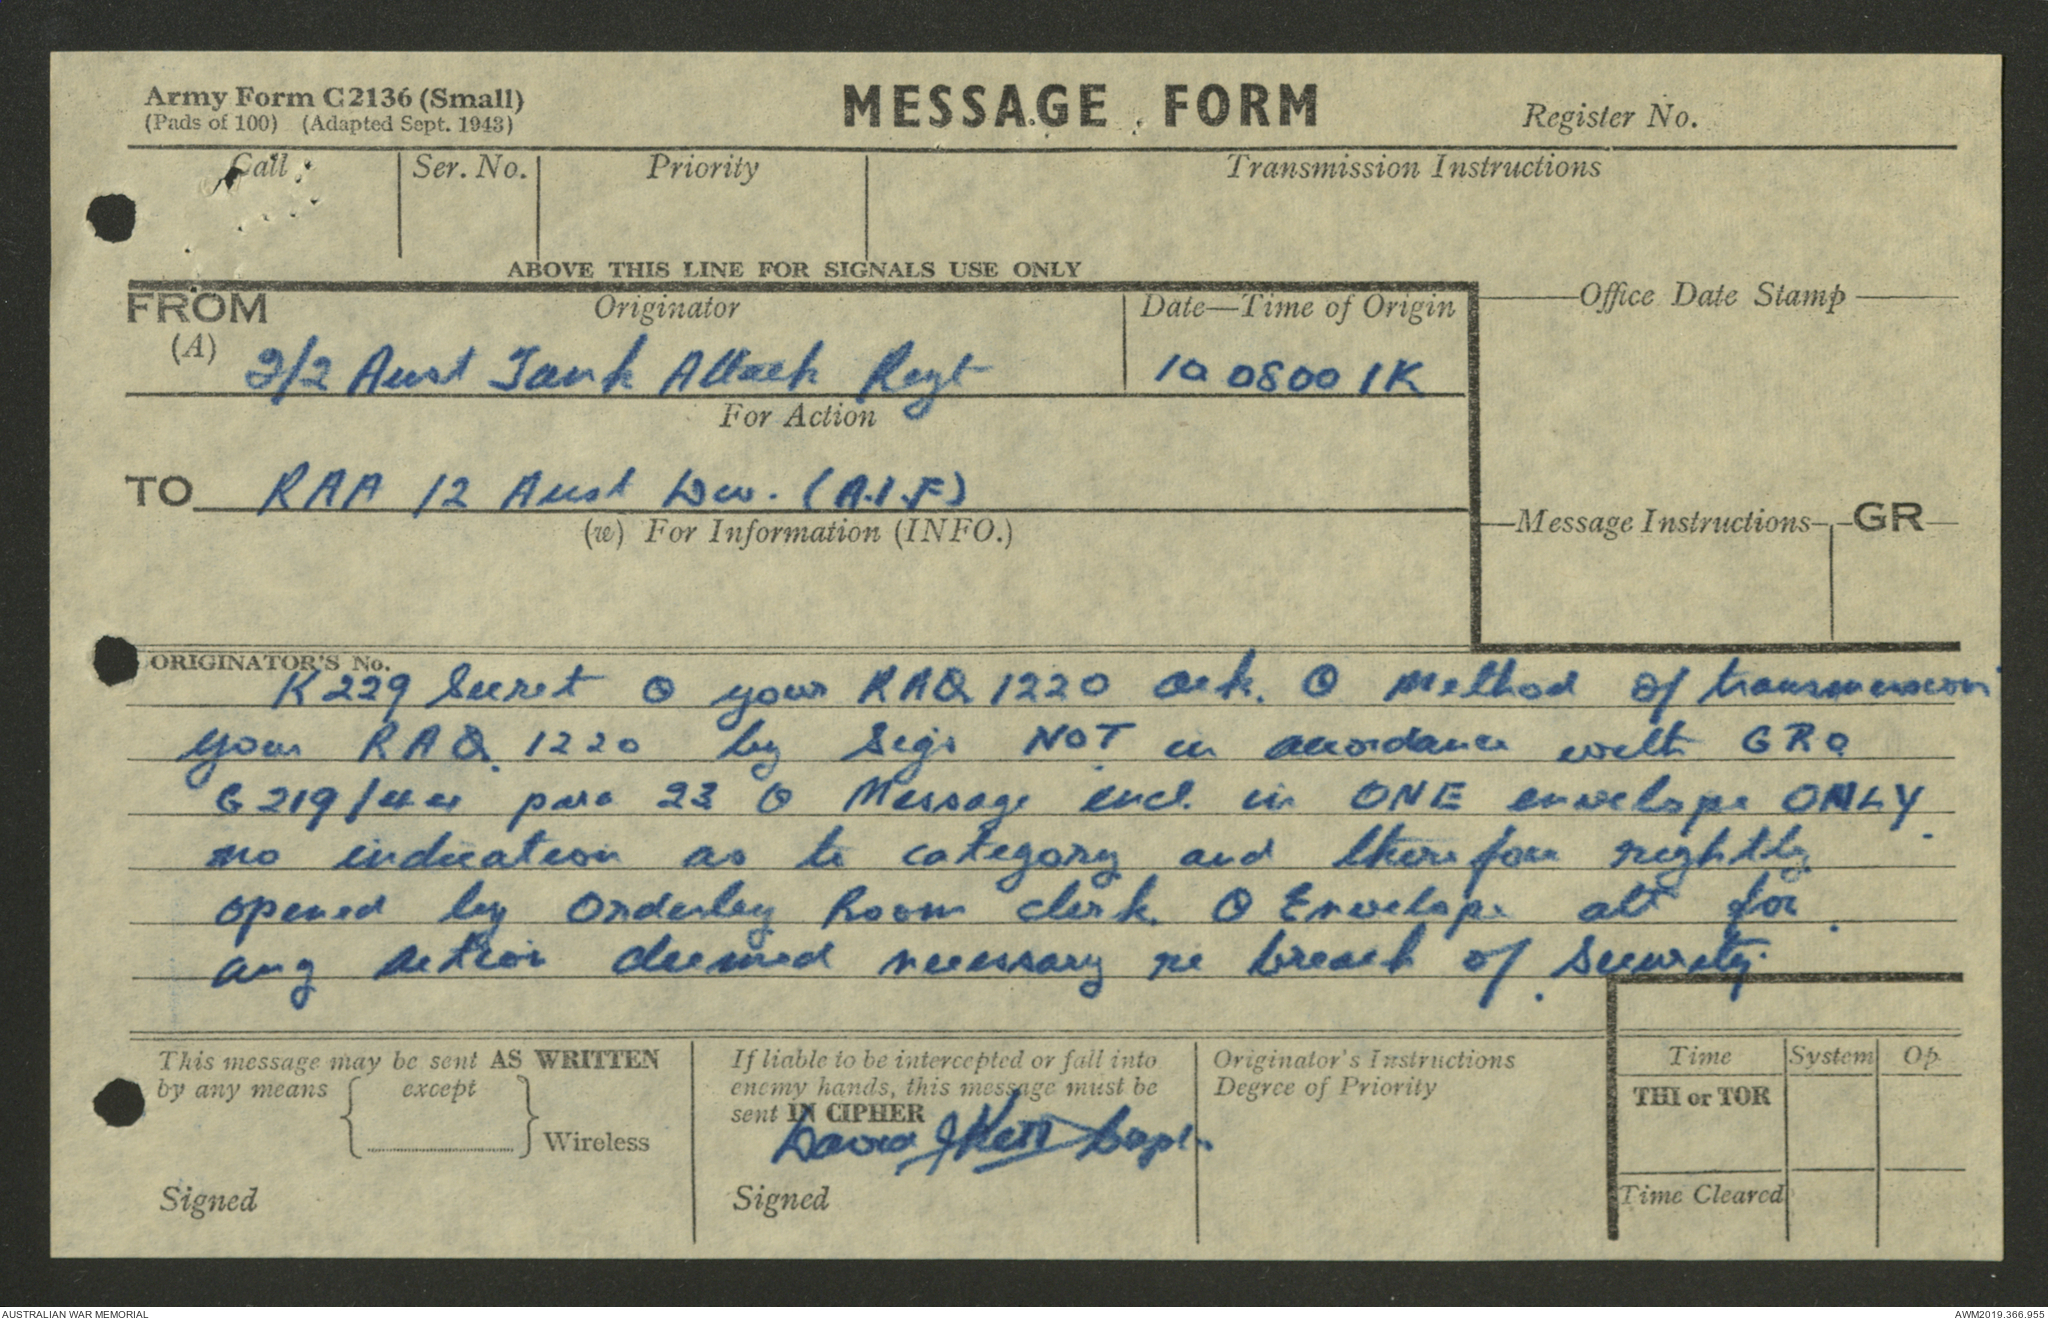 Army Form C2136 (Small)
(Pads of 100) (Adapted Sept. 1943)
MESSAGE FORM
Register No.
Call Ser. No. Priority Transmission Instructions
ABOVE THIS LINE FOR SIGNALS USE ONLY
FROM Originator Date—Time of Origin Office Date Stamp
(A)
2/2 Aust Tank Attack Regt 10 0800 1K
For Action
TO RAA 12 Aust Div. (A.I.F)
(w) For Information (INFO.)
Message Instructions GR
ORIGINATOR'S No.
K229 Secret O your RAQ 1220 ack. O Method of transmission
your RAQ 1220 by Sigs NOT in accordance with GRO
G219/44 para 23 O Message encl. in ONE envelope ONLY
no indication as to category and therefore rightly
opened by Orderley Room clerk O Envelope att for
any action deemed necessary re breach of Security.
This message may be sent AS WRITTEN
by any means except
Wireless
Signed
If liable to be intercepted or fall into
enemy hands, this message must be
sent IN CIPHER
David Kerr Capt.
Signed
Originator's Instructions
Degree of Priority
Time System Op
THI or TOR
Time Cleared
AUSTRALIAN WAR MEMORIAL AWM2019.366.955